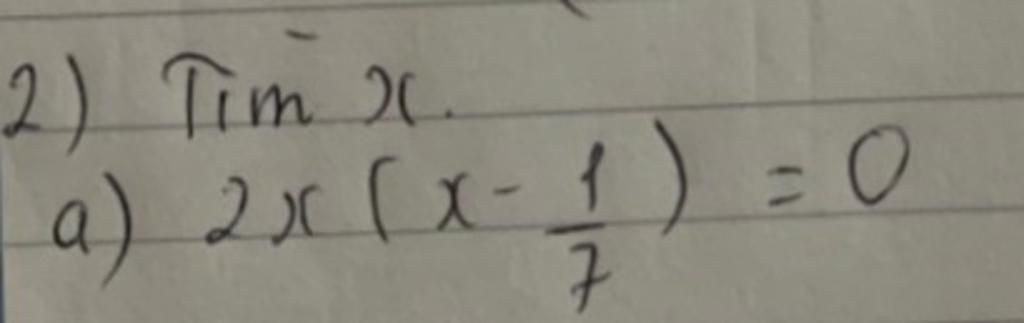 2) Tìm x.
a) 2x(x - 1/7) = 0